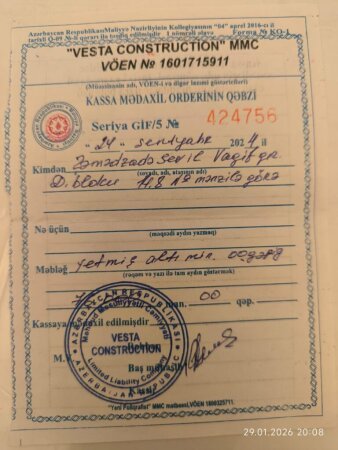 Azərbaycan Respublikası Maliyyə Nazirliyinin Kollegiyasının "04" aprel 2016-cı il
tarixli Q-09 №-li qərarı ilə təsdiq edilmişdir 1 nömrəli əlavə Forma № KO-1
"VESTA CONSTRUCTION" MMC
VÖEN № 1601715911
(Müəssisənin adı, VÖEN-i və digər lazımi göstəriciləri)
KASSA MƏDAXİL ORDERİNİN QƏBZİ
Seriya GİF/5 № 424756
"24" sentyabr 2024 il
Kimdən Səmədzadə Sevil Vaqif qz.
(soyadı, adı, atasının adı)
D. Bloku № mənzilə görə
Nə üçün
(məqsədi aydın yazmaq)
Məbləğ yetmiş altı min 00 qəp
(rəqəm və yazı ilə tam aydın göstərmək)
man. 00 qəp.
Kassaya mədaxil edilmişdir
AZƏRBAYCAN RESPUBLİKASI
Məhdud Məsuliyyətli Cəmiyyəti
VESTA
CONSTRUCTION
Limited Liability Company
AZERBAIJAN REPUBLIC
M.Y.
Baş mühasib
Kassir
"Yeni Poliqrafist" MMC mətbəəsi, VÖEN 1800325711
29.01.2026 20:08